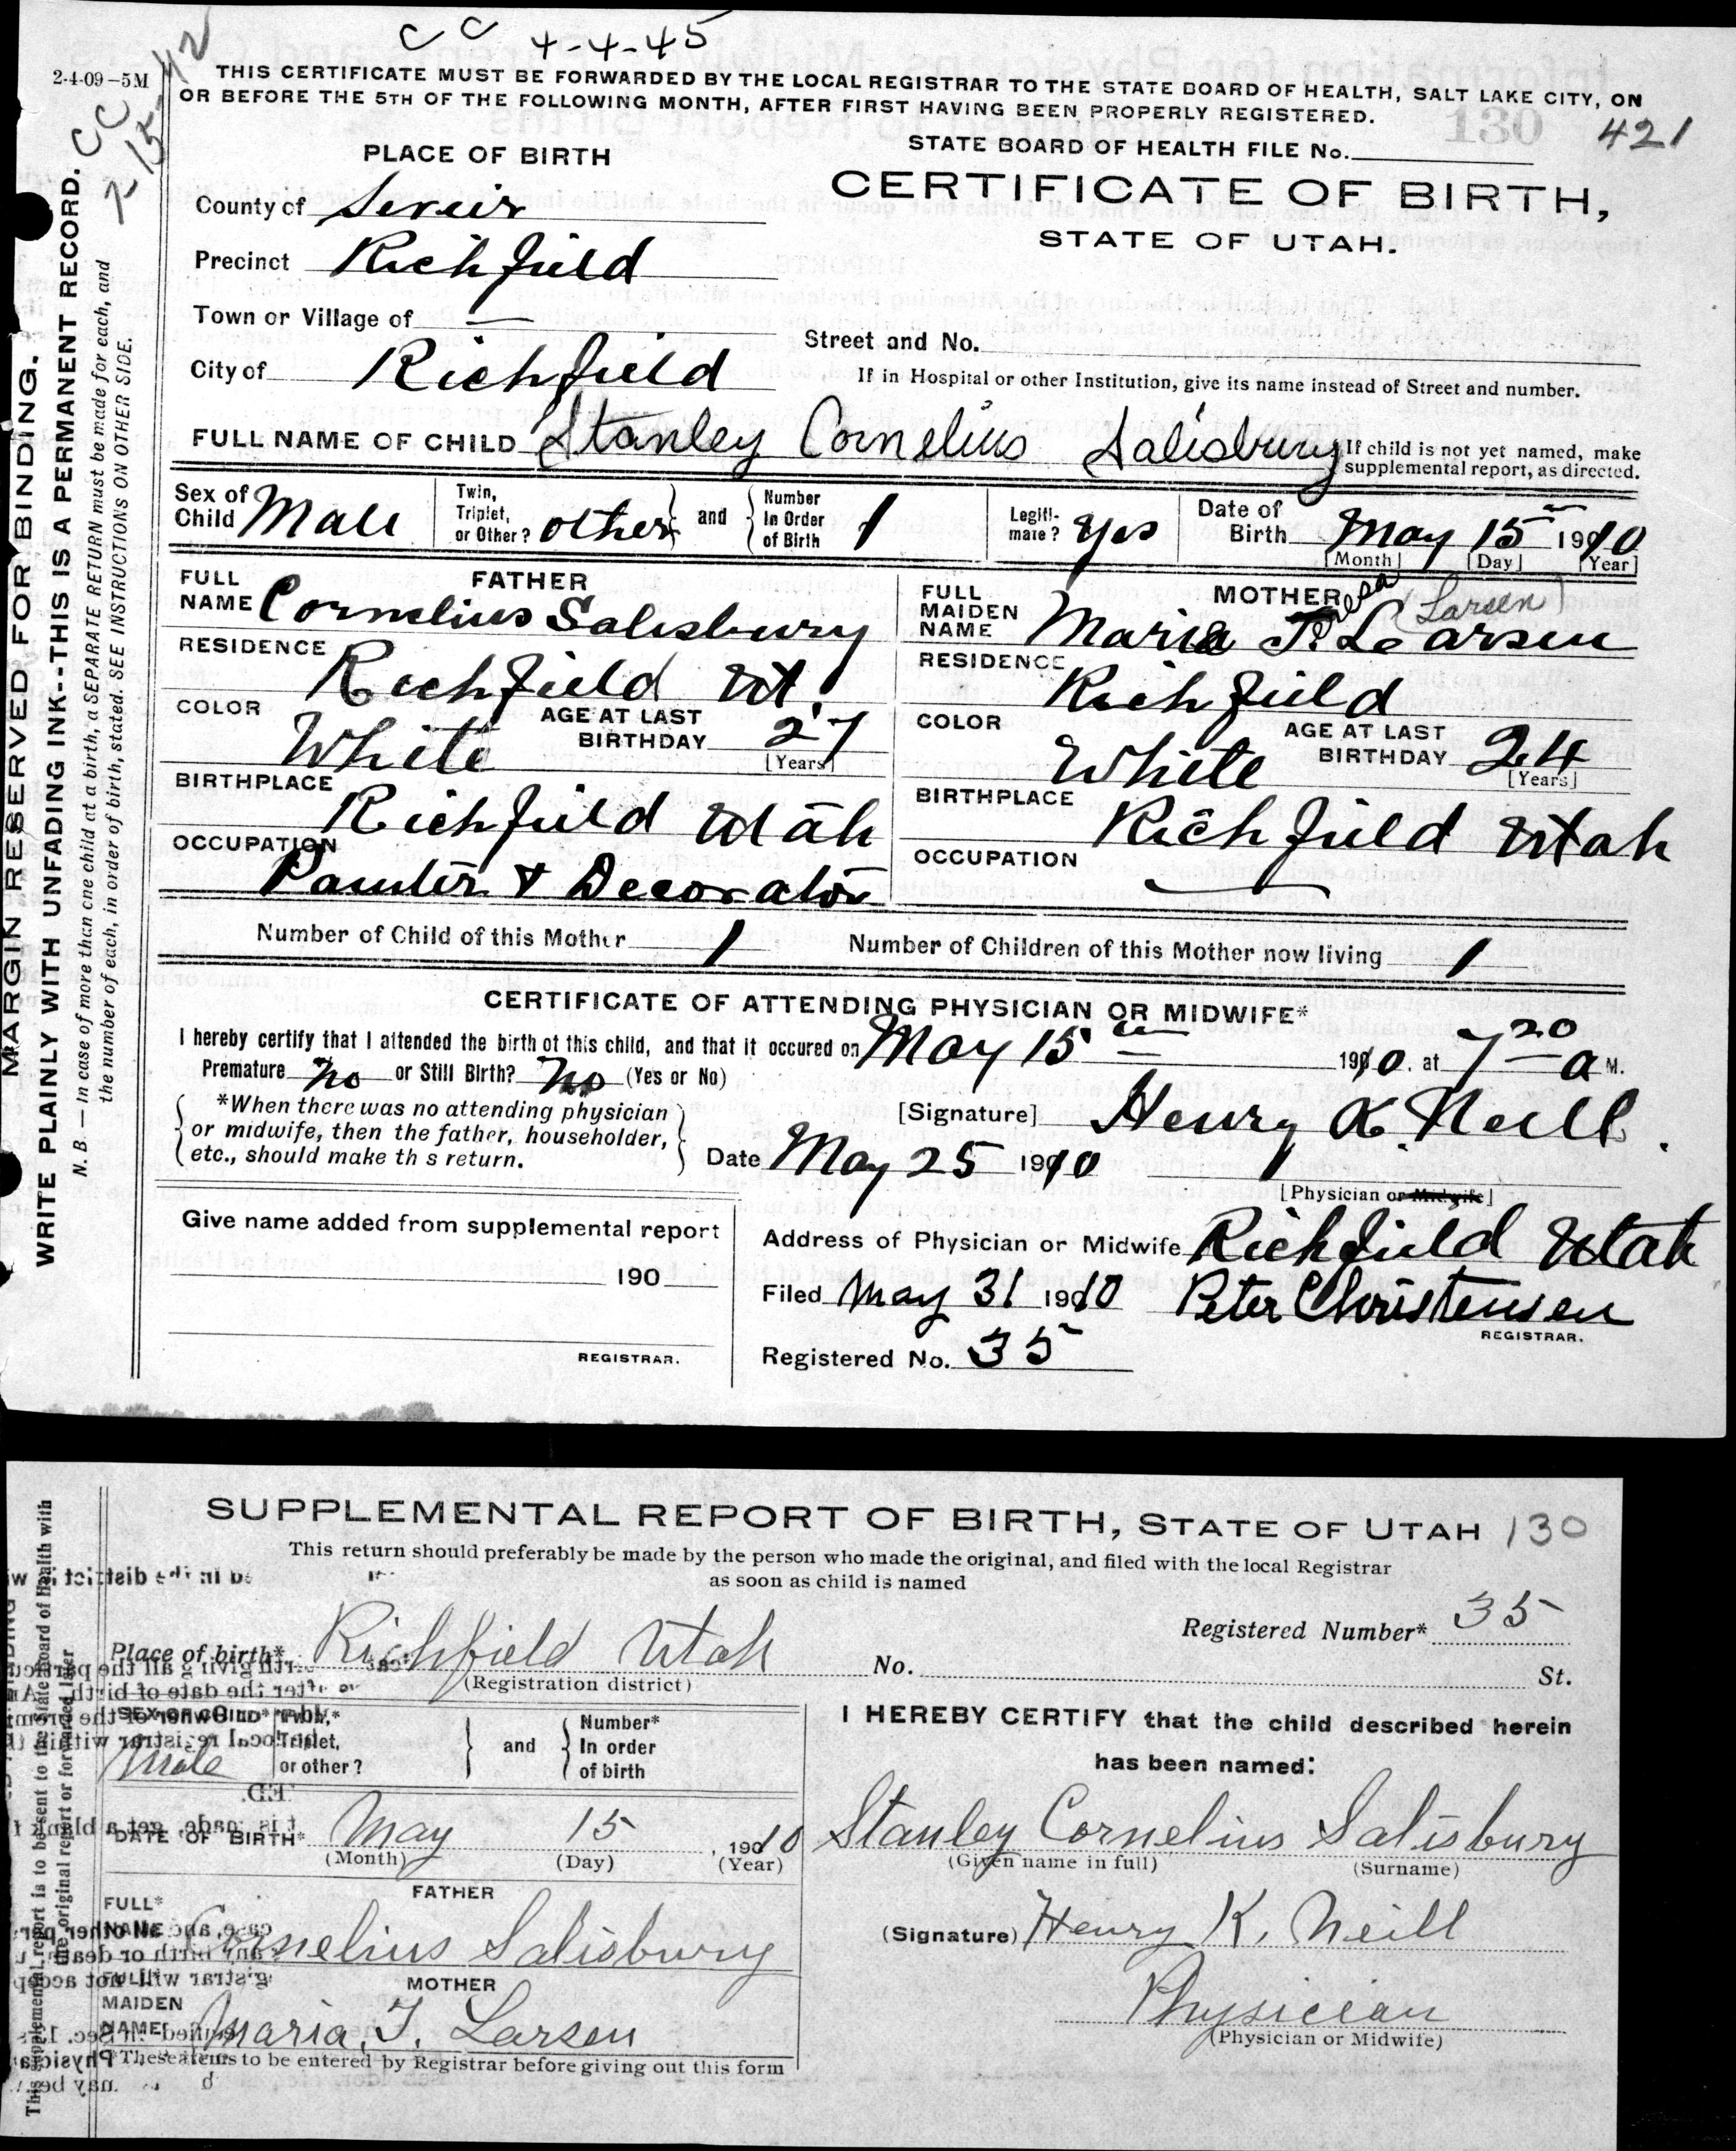 CC 4-4-45
2-4-09-5M
CC 2-15-42
THIS CERTIFICATE MUST BE FORWARDED BY THE LOCAL REGISTRAR TO THE STATE BOARD OF HEALTH, SALT LAKE CITY, ON
OR BEFORE THE 5TH OF THE FOLLOWING MONTH, AFTER FIRST HAVING BEEN PROPERLY REGISTERED.
130 421
STATE BOARD OF HEALTH FILE No.
PLACE OF BIRTH
CERTIFICATE OF BIRTH,
STATE OF UTAH.
County of Sevier
Precinct Richfield
Town or Village of —
Street and No.
City of Richfield
If in Hospital or other Institution, give its name instead of Street and number.
FULL NAME OF CHILD Stanley Cornelius Salisbury
If child is not yet named, make
supplemental report, as directed.
Sex of Child Male
Twin, Triplet, or Other? other and Number In Order of Birth 1
Legitimate? Yes
Date of Birth May 15 1910
[Month] [Day] [Year]
FATHER
FULL NAME Cornelius Salisbury
RESIDENCE Richfield Ut.
COLOR White
AGE AT LAST BIRTHDAY 27
[Years]
BIRTHPLACE Richfield Utah
OCCUPATION Painter & Decorator
MOTHER
FULL MAIDEN NAME Maria T. Larsen (Larsen)
RESIDENCE Richfield
COLOR White
AGE AT LAST BIRTHDAY 24
[Years]
BIRTHPLACE Richfield Utah
OCCUPATION —
Number of Child of this Mother 1 Number of Children of this Mother now living 1
CERTIFICATE OF ATTENDING PHYSICIAN OR MIDWIFE*
I hereby certify that I attended the birth of this child, and that it occured on May 15 1910. at 7 20 a M.
Premature no or Still Birth? no (Yes or No)
*When there was no attending physician
or midwife, then the father, householder,
etc., should make th s return.
[Signature] Henry K. Neill.
Date May 25 1910
[Physician or Midwife]
Give name added from supplemental report
190
REGISTRAR.
Address of Physician or Midwife Richfield Utah
Filed May 31 1910 Peter Christensen
REGISTRAR.
Registered No. 35
MARGIN RESERVED FOR BINDING.
WRITE PLAINLY WITH UNFADING INK--THIS IS A PERMANENT RECORD.
N. B. — In case of more than one child at a birth, a SEPARATE RETURN must be made for each, and
the number of each, in order of birth, stated. SEE INSTRUCTIONS ON OTHER SIDE.
SUPPLEMENTAL REPORT OF BIRTH, STATE OF UTAH 130
This return should preferably be made by the person who made the original, and filed with the local Registrar
as soon as child is named
Registered Number* 35
Place of birth* Richfield Utah No. St.
(Registration district)
SEX OF CHILD* Male
Twin,* Triplet, or other? and Number* In order of birth
I HEREBY CERTIFY that the child described herein
has been named:
DATE OF BIRTH* May 15, 1910
(Month) (Day) (Year)
Stanley Cornelius Salisbury
(Given name in full) (Surname)
FATHER
FULL* NAME Cornelius Salisbury
(Signature) Henry K. Neill
MOTHER
FULL* MAIDEN NAME Maria T. Larsen
Physician
(Physician or Midwife)
*These items to be entered by Registrar before giving out this form
This supplemental report is to be sent to the State Board of Health with
the original report or forwarded later